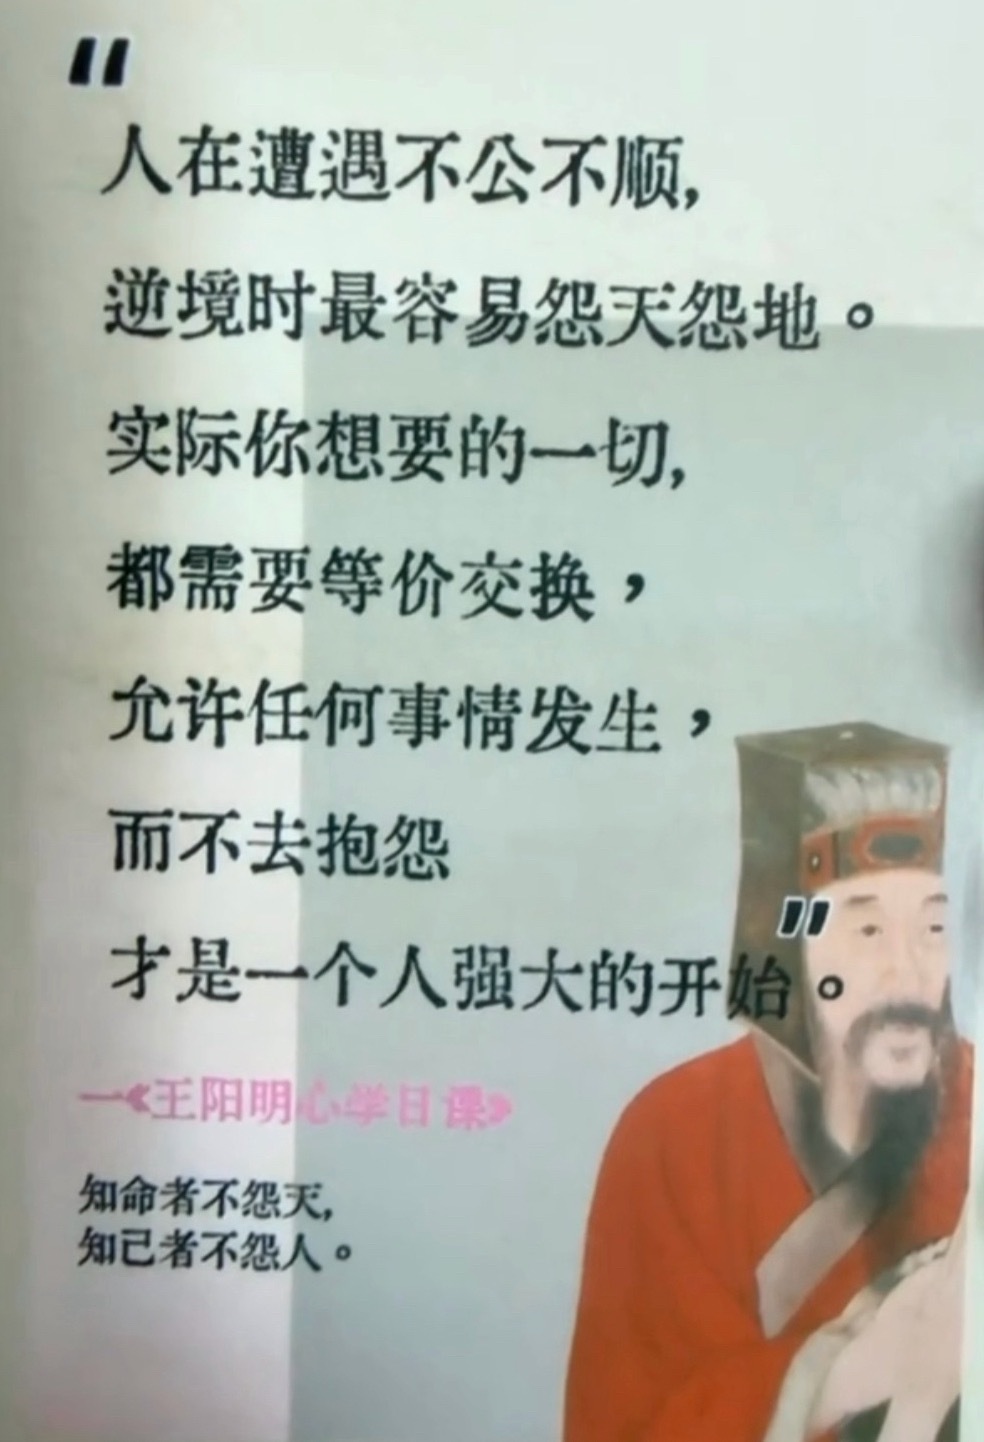 "
人在遭遇不公不顺,
逆境时最容易怨天怨地。
实际你想要的一切,
都需要等价交换，
允许任何事情发生，
而不去抱怨
才是一个人强大的开始"。
一《王阳明心学日课》
知命者不怨天,
知己者不怨人。